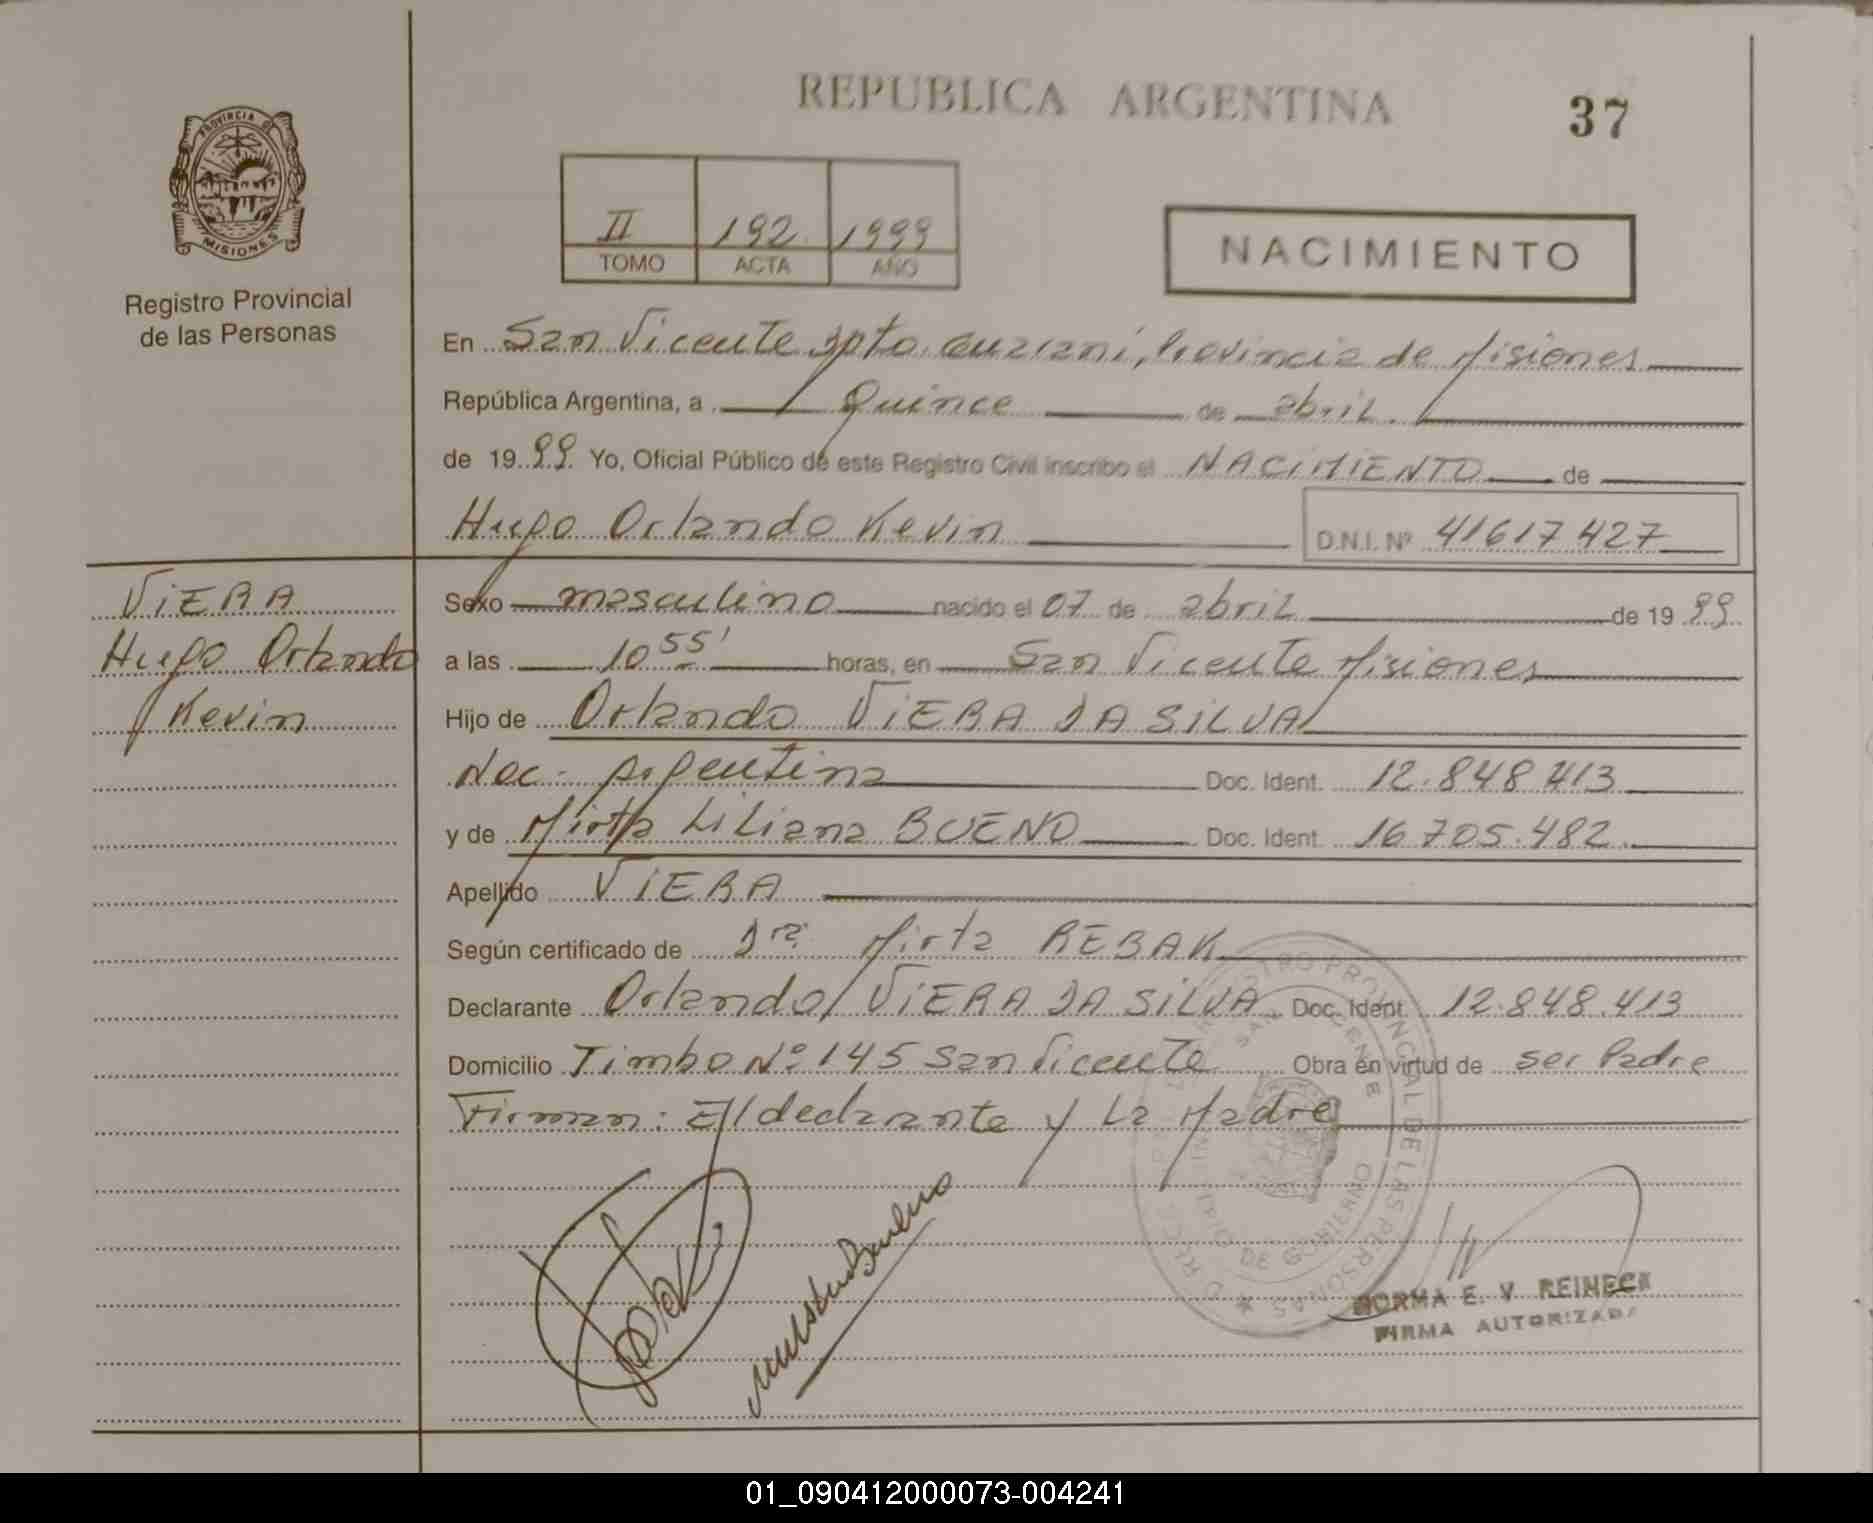 REPUBLICA ARGENTINA
37
PROVINCIA DE
MISIONES
Registro Provincial
de las Personas
II 192 1999
TOMO ACTA AÑO
NACIMIENTO
En San Vicente Dpto. Guaraní, Provincia de Misiones
República Argentina, a Quince de abril
de 1999 Yo, Oficial Público de este Registro Civil inscribo el NACIMIENTO de
Hugo Orlando Kevin D.N.I. Nº 41617427
VIERA
Hugo Orlando
Kevin
Sexo masculino nacido el 07 de abril de 1999
a las 10 55' horas, en San Vicente Misiones
Hijo de Orlando VIERA DA SILVA
Nac. Argentina Doc. Ident. 12.848.413
y de Mirta Liliana BUENO Doc. Ident. 16.705.482
Apellido VIERA
Según certificado de Dra. Mirta REBAK
Declarante Orlando VIERA DA SILVA Doc. Ident. 12.848.413
Domicilio Timbo Nº 145 San Vicente Obra en virtud de ser Padre
Firman: El declarante y La Madre
REGISTRO PROVINCIAL DE LAS PERSONAS
SAN VICENTE
DE GOBIERNO
NORMA E. V. REINECK
FIRMA AUTORIZADA
01_090412000073-004241